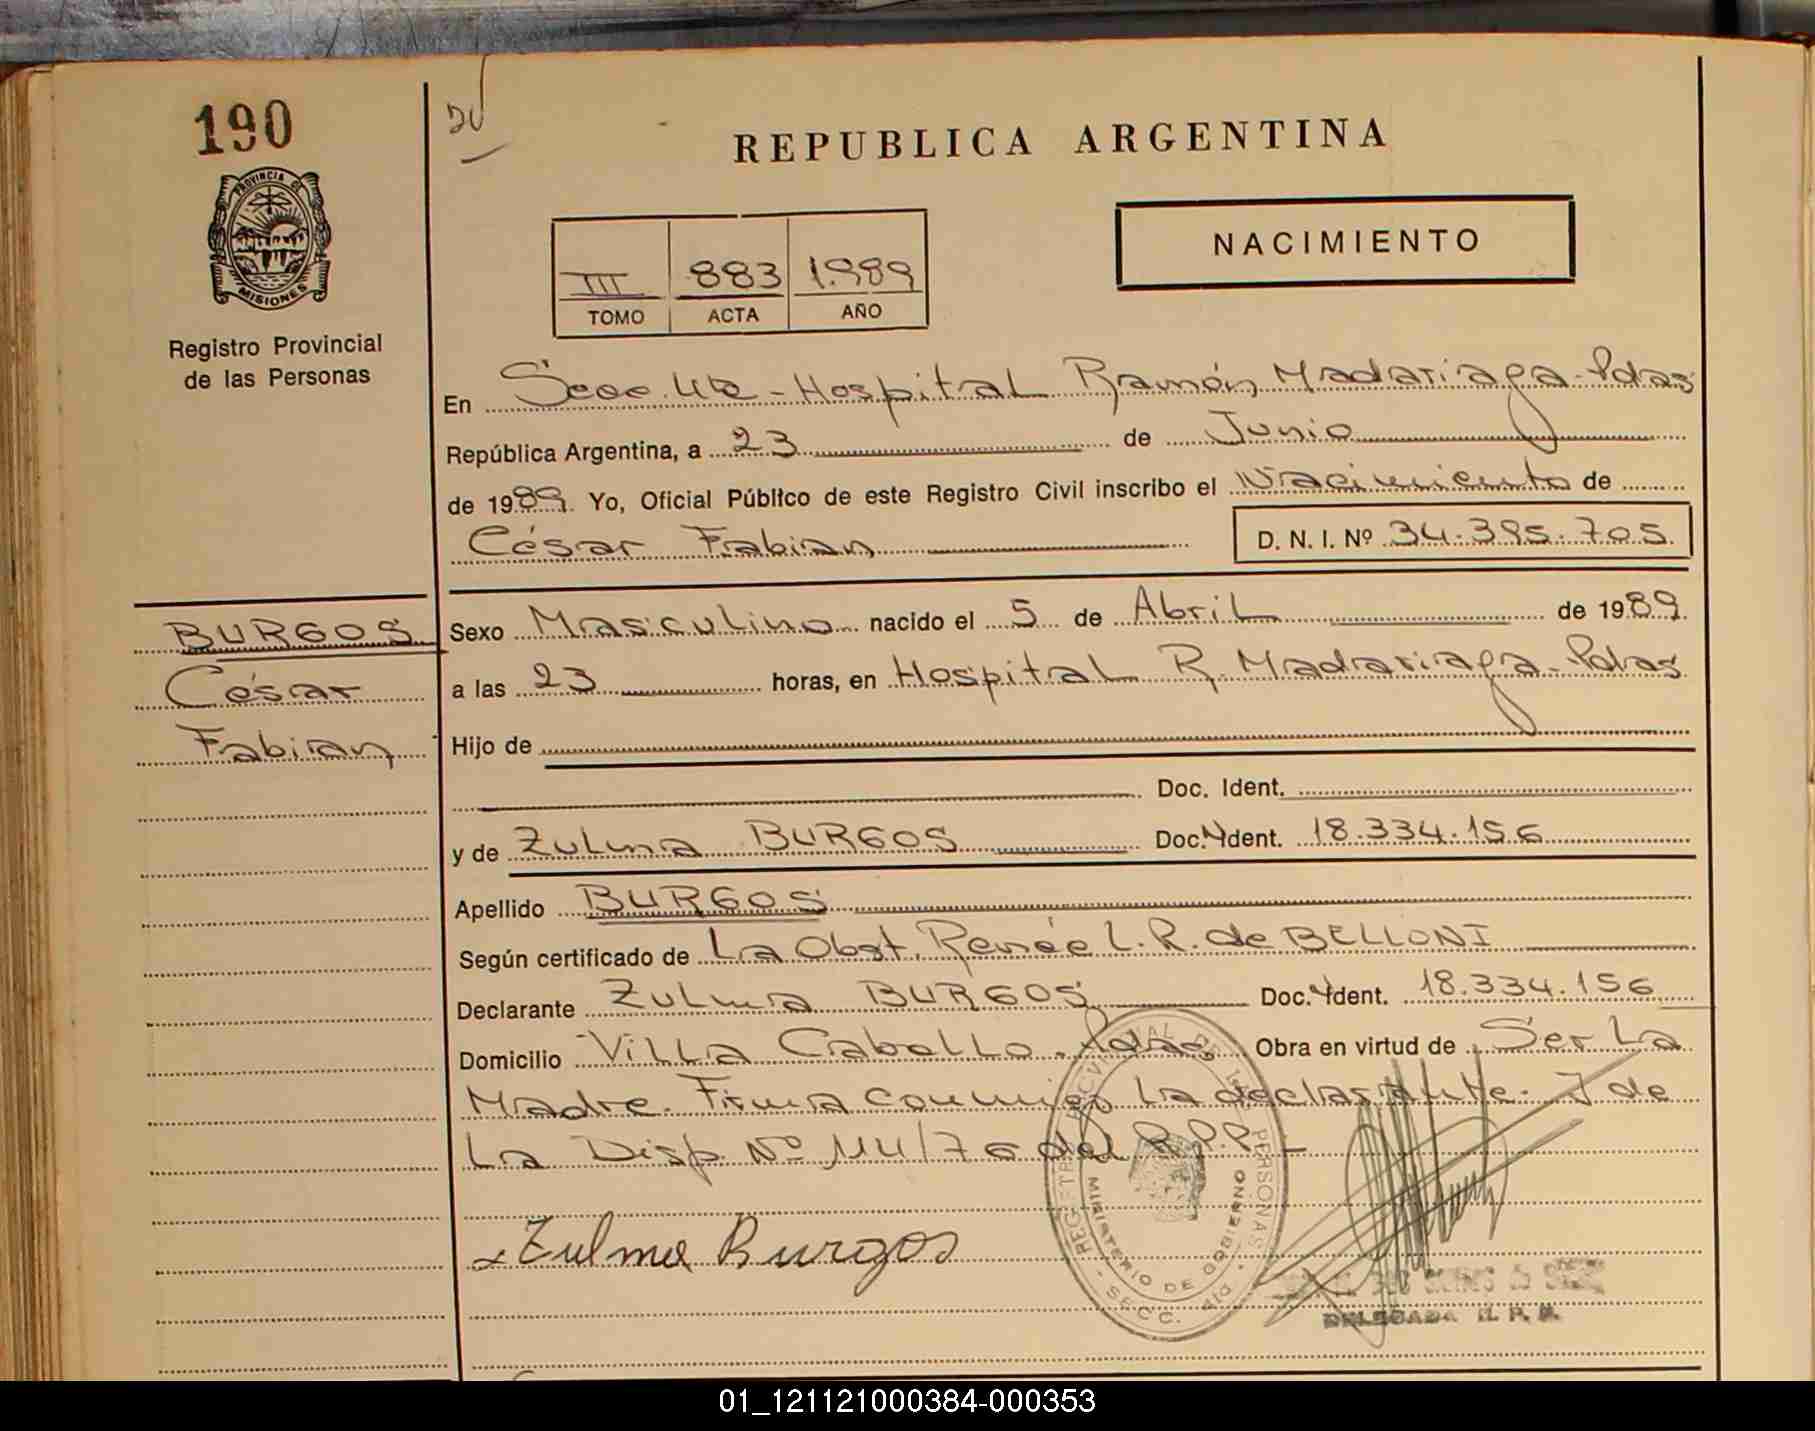 190
REPUBLICA ARGENTINA
PROVINCIA DE
MISIONES
NACIMIENTO
III 883 1.989
TOMO ACTA AÑO
Registro Provincial
de las Personas
En Secc. 4ta - Hospital Ramón Madariaga - Pdas
República Argentina, a 23 de Junio
de 1989. Yo, Oficial Público de este Registro Civil inscribo el Nacimiento de
César Fabian D. N. I. Nº 34.395.705.
BURGOS
César
Fabian
Sexo Masculino nacido el 5 de Abril de 1989.
a las 23 horas, en Hospital R. Madariaga - Pdas
Hijo de
Doc. Ident.
y de Zulma BURGOS Doc. Ident. 18.334.156
Apellido BURGOS
Según certificado de La Obst. Renée L. R. de BELLONI
Declarante Zulma BURGOS Doc. Ident. 18.334.156
Domicilio Villa Cabello. Pdas Obra en virtud de Ser La
Madre. Firma conmigo La declarante. J de
La Disp. Nº 114/76 del R.P.P. -
Zulma Burgos
MINISTERIO DE GOBIERNO
SECC. 4ta
DELEGADA R. P. P.
01_121121000384-000353